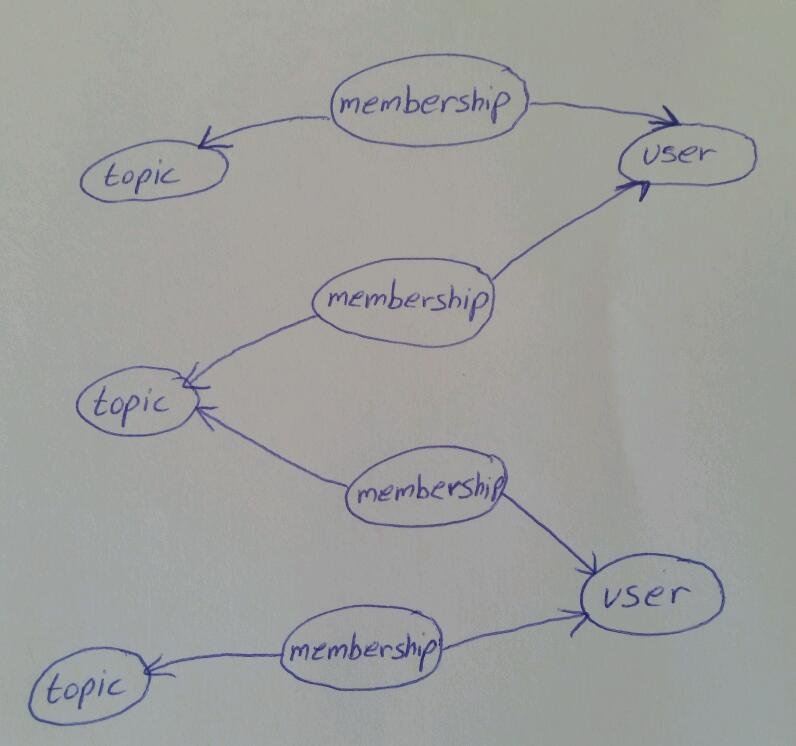 membership
user
topic
membership
topic
membership
user
membership
topic